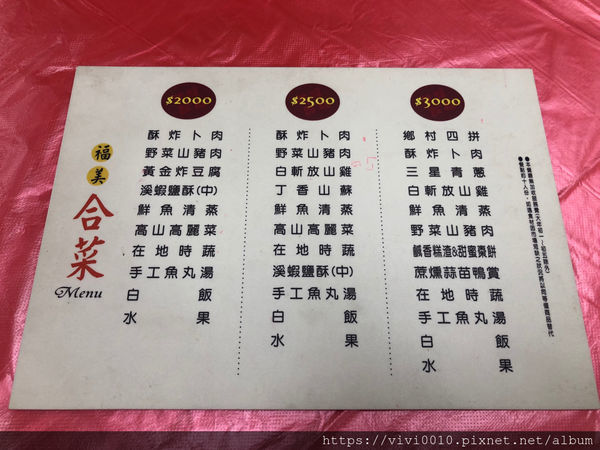 福美
合菜
Menu
$2000
酥炸卜肉
野菜山豬肉
黃金炸豆腐
溪蝦鹽酥(中)
鮮魚清蒸
高山高麗菜
在地時蔬
手工魚丸湯
白飯
水果
$2500
酥炸卜肉
野菜山豬肉
白斬放山雞
丁香山蘇
鮮魚清蒸
高山高麗菜
在地時蔬
溪蝦鹽酥(中)
手工魚丸湯
白飯
水果
$3000
鄉村四拼
酥炸卜肉
三星青蔥
白斬放山雞
鮮魚清蒸
野菜山豬肉
鹹香糕渣&甜蜜棗餅
蔗燻蒜苗鴨賞
在地時蔬
手工魚丸湯
白飯
水果
https://vivi0010.pixnet.net/album